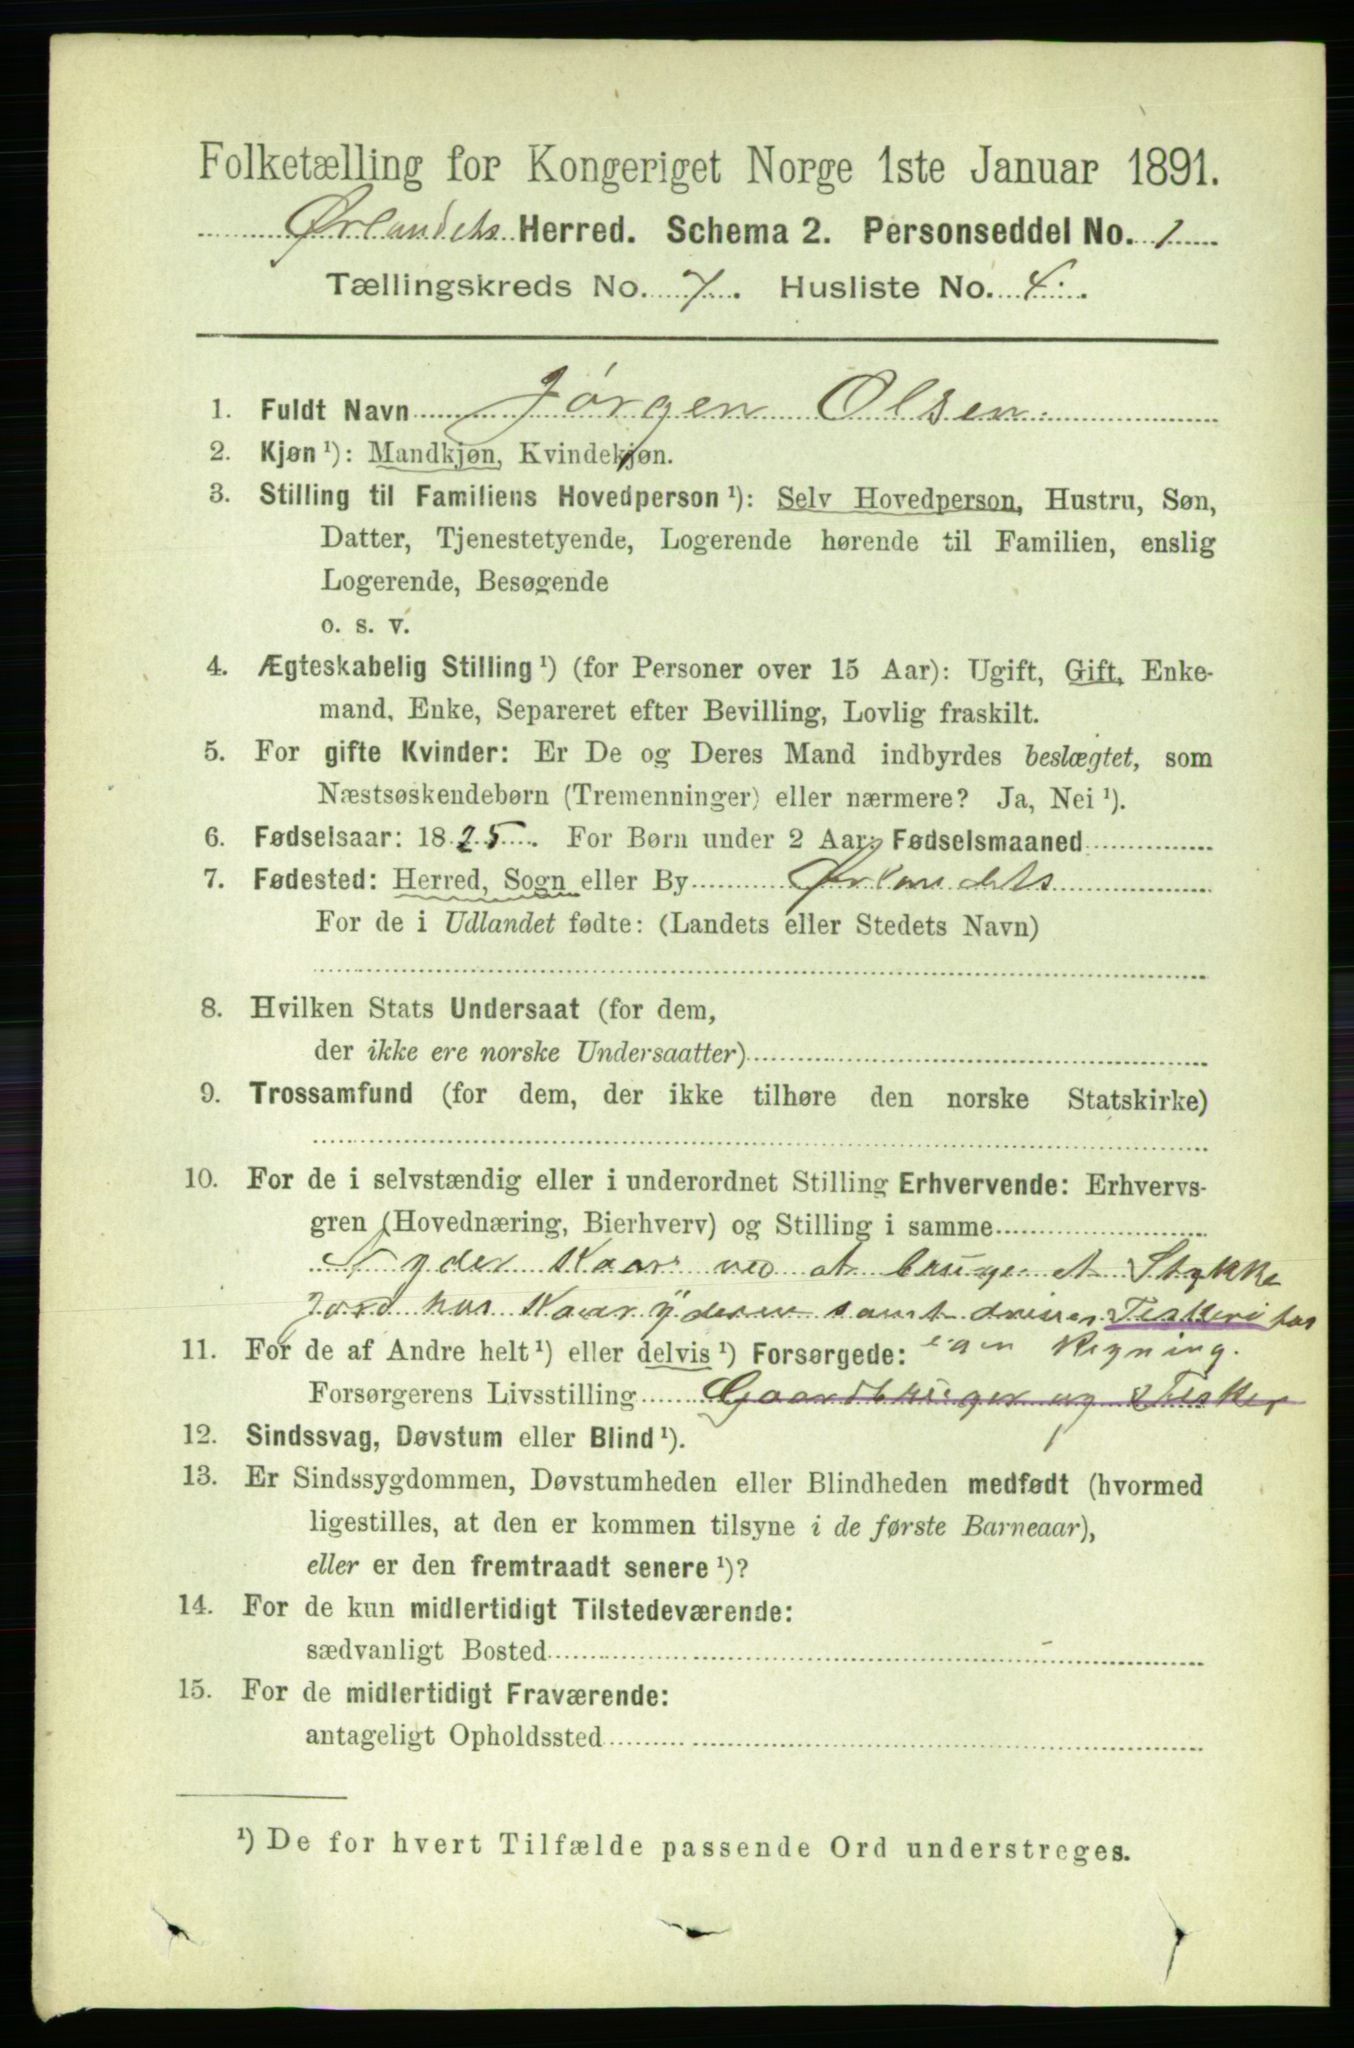 Folketælling for Kongeriget Norge 1ste Januar 1891.
Ørlandets Herred. Schema 2. Personseddel No. 1
Tællingskreds No. 7. Husliste No. 4.
1. Fuldt Navn Jørgen Olsen.
2. Kjøn ¹): Mandkjøn, Kvindekjøn.
3. Stilling til Familiens Hovedperson ¹): Selv Hovedperson, Hustru, Søn,
Datter, Tjenestetyende, Logerende hørende til Familien, enslig
Logerende, Besøgende
o. s. v.
4. Ægteskabelig Stilling ¹) (for Personer over 15 Aar): Ugift, Gift, Enke-
mand, Enke, Separeret efter Bevilling, Lovlig fraskilt.
5. For gifte Kvinder: Er De og Deres Mand indbyrdes beslægtet, som
Næstsøskendebørn (Tremenninger) eller nærmere? Ja, Nei ¹).
6. Fødselsaar: 1825. For Børn under 2 Aar: Fødselsmaaned
7. Fødested: Herred, Sogn eller By Ørlandets
For de i Udlandet fødte: (Landets eller Stedets Navn)
8. Hvilken Stats Undersaat (for dem,
der ikke ere norske Undersaatter)
9. Trossamfund (for dem, der ikke tilhøre den norske Statskirke)
10. For de i selvstændig eller i underordnet Stilling Erhvervende: Erhvervs-
gren (Hovednæring, Bierhverv) og Stilling i samme
Nyder Kaar ved at bruge et Stykke
Jord hos Kaaryderen samt driver Fiskeri for
11. For de af Andre helt ¹) eller delvis ¹) Forsørgede: egen Regning.
Forsørgerens Livsstilling Gaardbruger og Fisker
12. Sindssvag, Døvstum eller Blind ¹).
13. Er Sindssygdommen, Døvstumheden eller Blindheden medfødt (hvormed
ligestilles, at den er kommen tilsyne i de første Barneaar),
eller er den fremtraadt senere ¹)?
14. For de kun midlertidigt Tilstedeværende:
sædvanligt Bosted
15. For de midlertidigt Fraværende:
antageligt Opholdssted
¹) De for hvert Tilfælde passende Ord understreges.